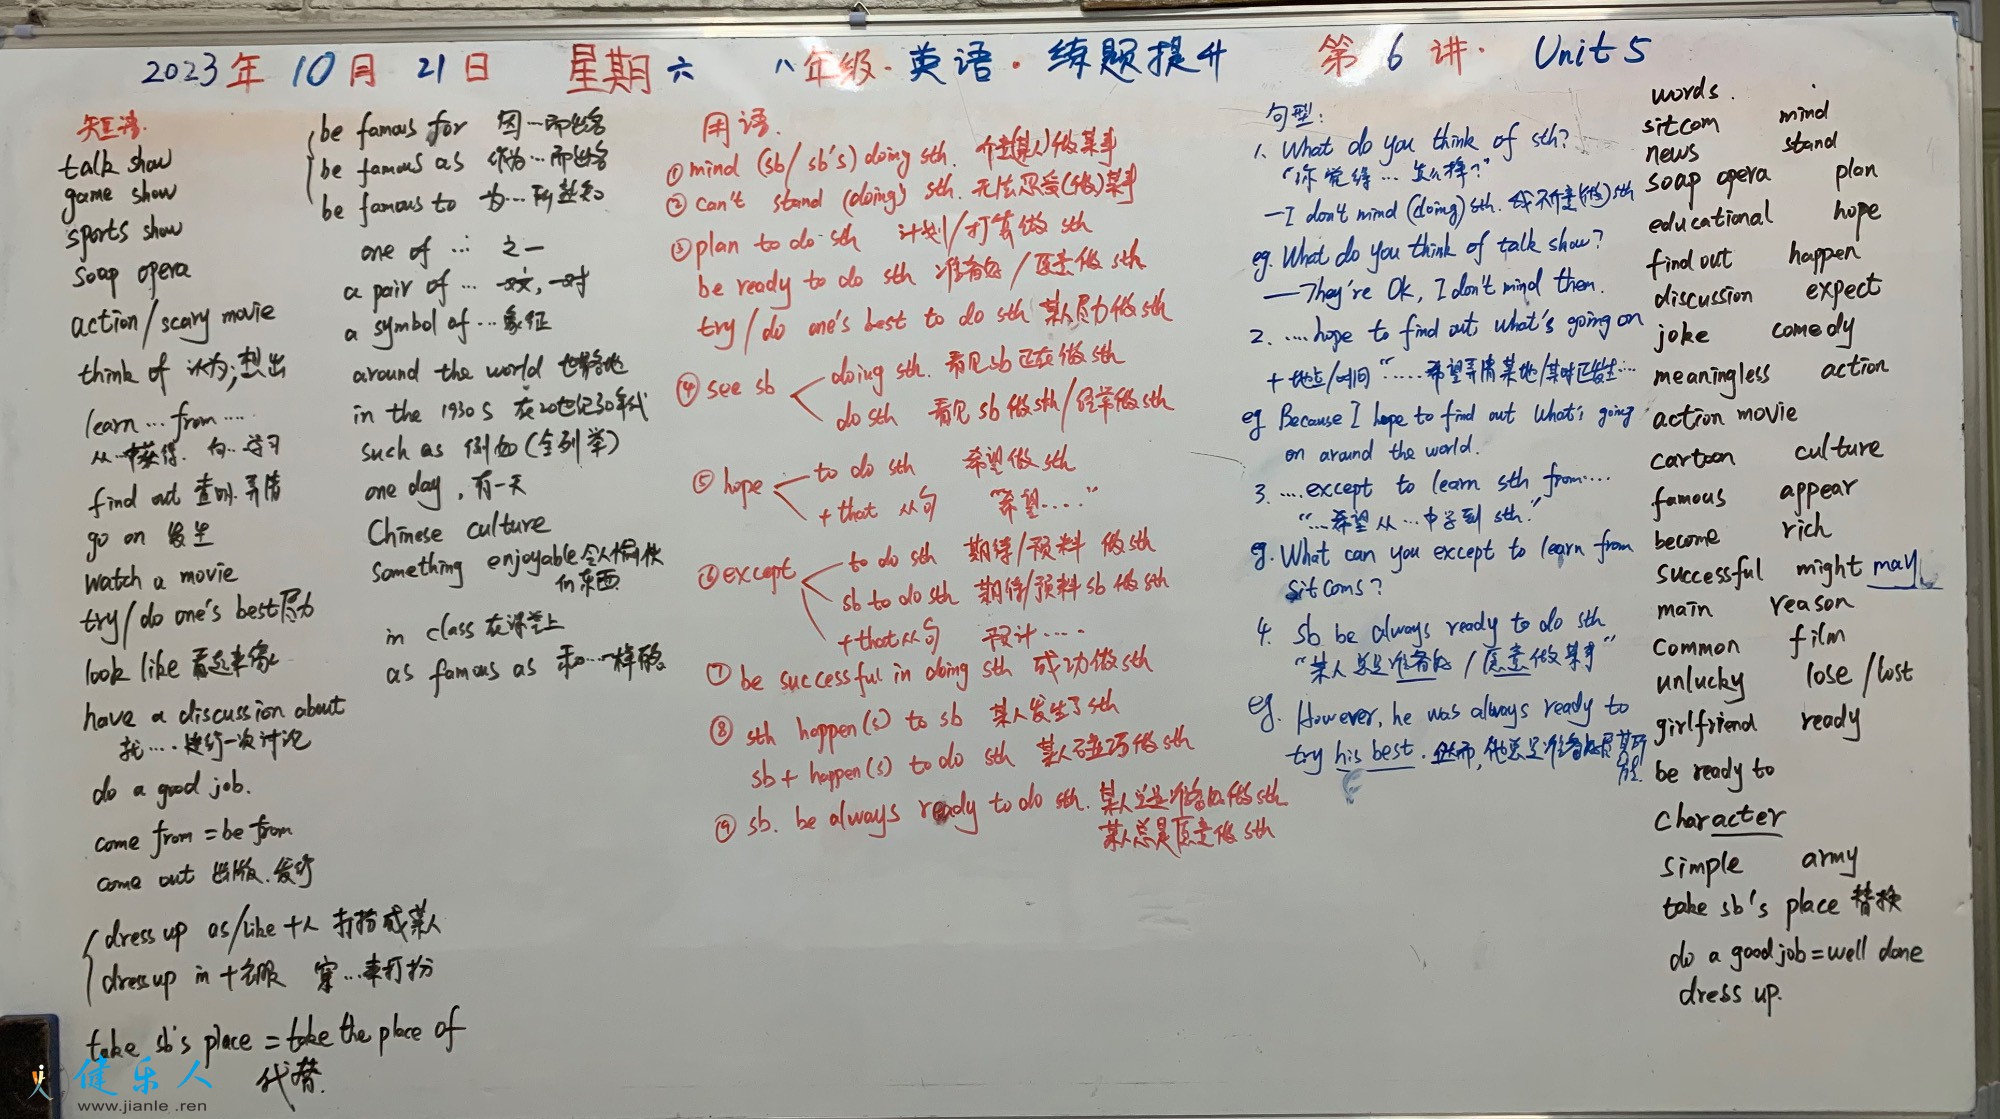 2023年 10月 21日 星期六 八年级·英语·练题提升 第6讲· Unit 5
短语.
talk show
game show
sports show
soap opera
action/scary movie
think of 认为;想出
learn ... from ....
从...中获得. 向...学习
find out 查明.弄清
go on 发生
watch a movie
try/do one's best 尽力
look like 看起来像
have a discussion about
就....进行一次讨论
do a good job.
come from = be from
come out 出版.发行
dress up as/like + 人 打扮成某人
dress up in + 衣服 穿...来打扮
take sb's place = take the place of
代替.
be famous for 因...而出名
be famous as 作为...而出名
be famous to 为...所熟知
one of ... 之一
a pair of ... 一双,一对
a symbol of ... 象征
around the world 世界各地
in the 1930s 在20世纪30年代
such as 例如(全列举)
one day , 有一天
Chinese culture
something enjoyable 令人愉快
的东西
in class 在课堂上
as famous as 和...一样的
用语.
① mind (sb/sb's) doing sth. 介意(某人)做某事
② can't stand (doing) sth. 无法忍受(做)某事
③ plan to do sth 计划/打算做 sth
be ready to do sth 准备好/愿意做 sth
try/do one's best to do sth 某人尽力做 sth
④ see sb
doing sth. 看见 sb 正在做 sth
do sth 看见 sb 做 sth/经常做 sth
⑤ hope
to do sth 希望做 sth
+ that 从句 "希望....."
⑥ except
to do sth 期待/预料 做 sth
sb to do sth 期待/预料 sb 做 sth
+ that 从句 预计 ....
⑦ be successful in doing sth 成功做 sth
⑧ sth happen(s) to sb 某人发生了 sth
sb + happen(s) to do sth 某人碰巧做 sth
⑨ sb. be always ready to do sth. 某人总是准备好做 sth
某人总是愿意做 sth
句型:
1. What do you think of sth?
"你觉得...怎么样?"
—I don't mind (doing) sth. 我不介意(做) sth
eg. What do you think of talk show?
—They're Ok, I don't mind them.
2. ....hope to find out what's going on
+ 地点/时间 "....希望弄清某地/某时正发生...
eg Because I hope to find out what's going
on around the world.
3. ....except to learn sth from....
"...希望从...中学到 sth."
eg. What can you except to learn from
sitcoms?
4. sb be always ready to do sth
"某人总是准备好/愿意做某事"
eg. However, he was always ready to
try his best. 然而,他总是准备好尽其所
能.
words.
sitcom mind
news stand
soap opera plan
educational hope
find out happen
discussion expect
joke comedy
meaningless action
action movie
cartoon culture
famous appear
become rich
successful might may
main reason
common film
unlucky lose/lost
girlfriend ready
be ready to
character
simple army
take sb's place 替换
do a good job = well done
dress up.
健乐人
www.jianle.ren